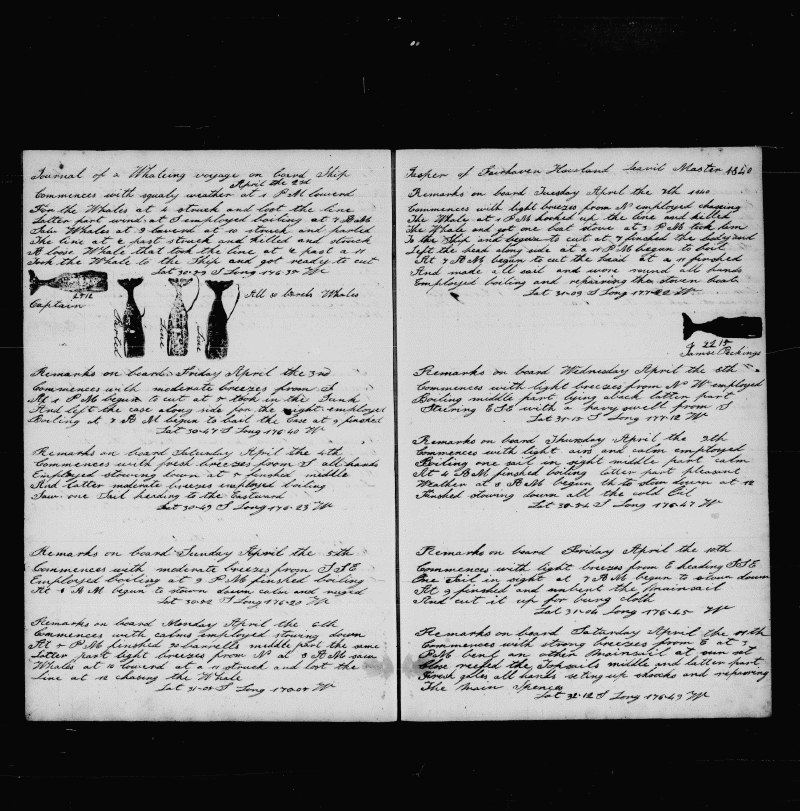 Journal of a Whaleing voyage on board Ship
April the 2nd
Commences with squaly weather at 1 P M lowerd
For the Whales at 4 struck and loot the line
Latter part wind at S employed boiling at 7 A M
Saw Whales at 9 lowerd at 10 struck and parted
The line at ½ past struck and killed and struck
A loose Whale that took the line at ½ past a 11
Took the Whale to the Ship and got ready to cut
Lat 30-39 S Long 176-32 W
Captain
Parted
Line
Line
All 80 barels Whales
Remarks on board Friday April the 3rd
Commences with moderate breezes from S
At 1 P M began to cut at 5 took in the Junk
And left the case along side for the night employed
Boiling at 7 A M begun to bail the Case at 9 finshed
Lat 30-47 S Long 176-40 W
Remarks on board Saturday April the 4th
Commences with fresh breezes from S all hands
Employed stowing down at finshed middle
And latter moderate breezes employed boiling
Saw one Sail heading to the Eastward
Lat 30-49 S Long 176-23 W
Remarks on board Sunday April the 5th
Commences with moderate breezes from S S E
Employed boiling at 9 P M finshed boiling
At 1 A M begun to stown down calm and ruged
Lat 30-22 S Long 176-20 W
Remarks on board Monday April the 6th
Commences with calms employed stowing down
At 5 P M finshed 30 barells middle part the same
Latter part light breezes from N at 8 A M saw
Whales at 10 lowerd at a 11 struck and lost the
Line at 12 chasing the Whale
Lat 31-02 S Long W
Jasper of Fairhaven Master 1840
Remarks on board Tuesday April the 7th 1840
Commences with light breezes from N employed chasing
The Whale at 1 P M hooked up the line and killed
The Whale and got one boat stove at 3 P M took him
To the Ship and begun to cut at 7 finshed the body and
Left the head along side at a 11 P M begun to boil
At 7 A M begun to cut the head at a 11 finshed
And made all sail and wore round all hands
Employed boiling and repairing the stoven boat
Lat 31-09 S Long W
22 15
Remarks on board Wednesday April the 8th
Commences with light breezes from N W employed
Boiling middle part lying aback latter part
Steiring E S E with a havy swell from S
Lat S Long 177-12 W
Remarks on board Thursday April the 9th
Commences with light airs and calm employed
Boiling one sail in sight middle part calm
At 4 A M finshed boiling latter part pleasant
Weather at 8 A M begun to stow down at 12
Finshed stowing down all the cold Oil
Lat S Long 176-47 W
Remarks on board Friday April the 10th
Commences with light breezes from E heading S S E
One Sail in sight at 7 A M begun to stown down
At 9 finshed and unbent the Mainsail
And cut it up for being cloth
Lat 31-06 Long 176-45 W
Remarks on board Saturday April the 11th
Commences with strong breezes from E at 3
P M bent an other Mainsail at sun set
Close reefed the Topsails middle and latter part
Fresh gales all hands seting up shrouds and repairing
The Main Spencer
Lat 32-12 S Long 176-49 W